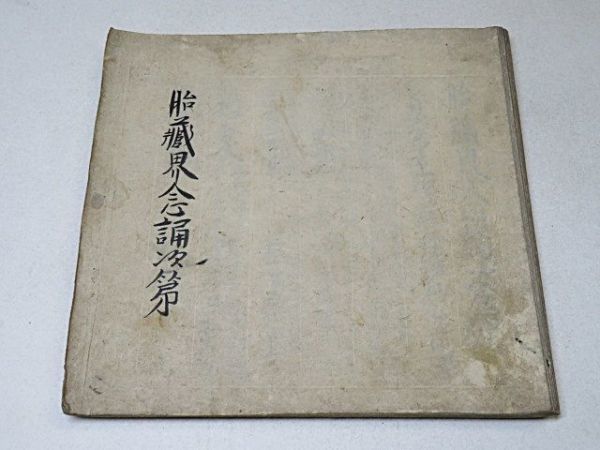 胎藏界念誦次第